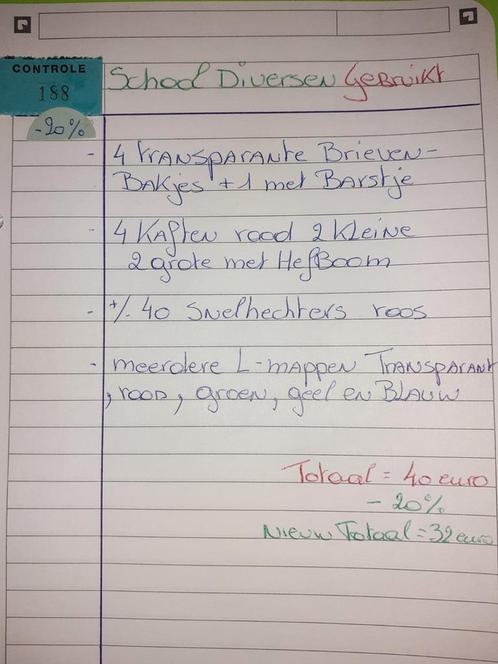 CONTROLE
188
-20%
School Diversen Gebruikt
- 4 transparante Brieven-
Bakjes + 1 met Barstje
- 4 Kaften rood 2 kleine
2 grote met Hefboom
- +/- 40 Snelhechters roos
- meerdere L-mappen Transparant
, rood, groen, geel en Blauw
Totaal = 40 euro
- 20%
Nieuw Totaal = 32 euro